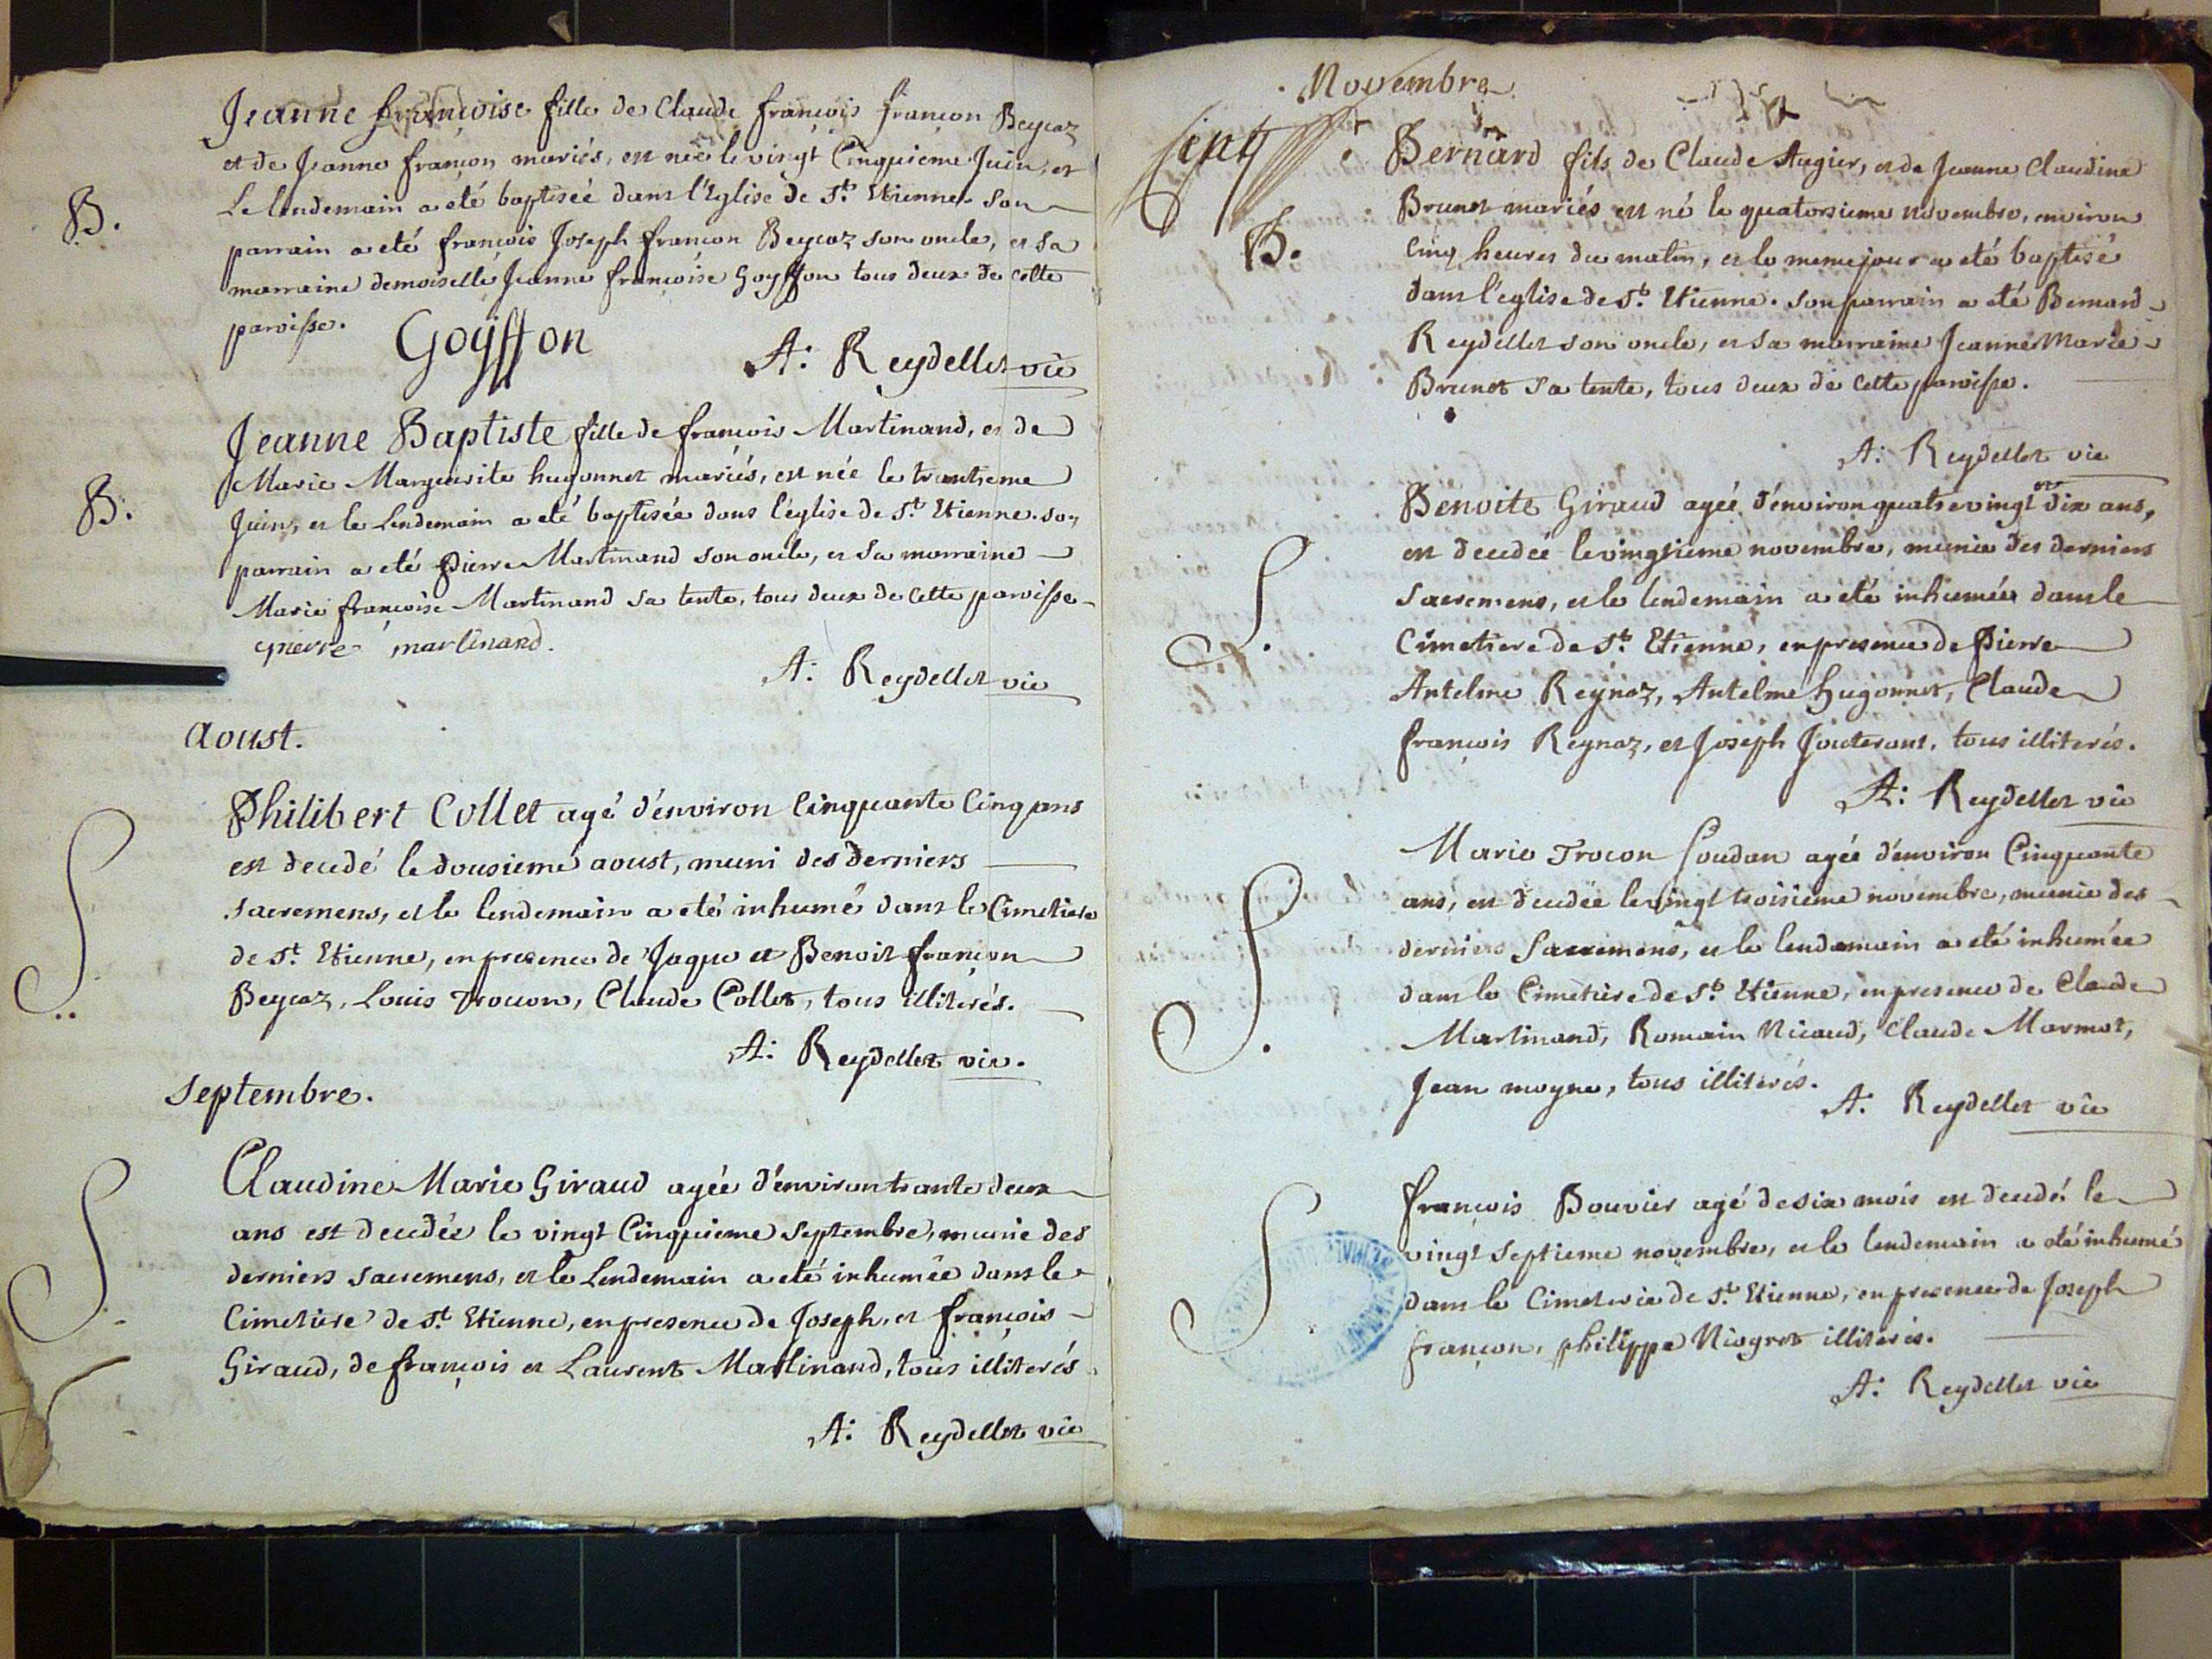 Jeanne françoise fille de Claude françois françon Beycoz
et de Jeanne françon mariés, est née le vingt Cinquieme Juin, et
Le lendemain a eté baptisée dans l'Eglise de St. Etienne. Son
B.
parrain a eté françois Joseph françon Beycoz son oncle, et sa
marraine demoiselle Jeanne françoise Goyffon tous deux de cette
paroisse.
Goÿffon
A: Reydellet vic
Jeanne Baptiste fille de françois Martinand, et de
Marie Marguerite hugonnet mariés, est née le trentieme
B.
Juin, et le Lendemain a eté baptisée dans l'église de St. Etienne. son
parrain a eté Pierre Martinand son oncle, et sa marraine
Marie françoise Martinand sa tente, tous deux de cette paroisse
pierre martinand.
A: Reydellet vic
aoust.
Philibert Collet agé d'environ Cinquante Cinq ans
est decedé le dousieme aoust, muni des derniers
S.
sacremens, et le lendemain a eté inhumé dans le Cimetiere
de St. Etienne, en presence de Jaque et Benoit françon
Beycoz, Louis Trocon, Claude Collet, tous illiterés.
A: Reydellet vic.
septembre.
Claudine Marie Giraud agée d'environ trante deux
ans est decedée le vingt Cinquieme septembre, munie des
S.
derniers sacremens, et le Lendemain a eté inhumée dans le
Cimetiere de St. Etienne, en presence de Joseph, et françois
Giraud, de françois et Laurent Martinand, tous illiterés
A: Reydellet vic
Novembre
Cinq
Bernard fils de Claude Augier, et de Jeanne Claudine
Brunet mariés est né le quatorsieme novembre, environ
B.
Cinq heures du matin, et le meme jour a eté baptisé
dans l'eglise de St. Etienne. son parrain a eté Bernard
Reydellet son oncle, et sa marraine Jeanne Marie
Brunet sa tente, tous deux de cette paroisse.
A: Reydellet vic
Benoite Giraud agée d'environ quatrevingt et dix ans,
est decedée le vingtieme novembre, munie des derniers
S.
sacremens, et le lendemain a eté inhumée dans le
Cimetiere de St. Etienne, en presence de Pierre
Antelme Reynaz, Antelme hugonnet, Claude
françois Reynaz, et Joseph Jouterant, tous illiterés.
A: Reydellet vic
Marie Trocon Coudan agée d'environ Cinquante
ans, est decedée le vingt troisieme novembre, munie des
S.
derniers Sacremens, et le lendemain a eté inhumée
dans le Cimetiere de St. Etienne, en presence de Claude
Martinand, Romain Nicaud, Claude Marmet,
Jean moyne, tous illiterés.
A: Reydellet vic
françois Bouvier agé de six mois est decedé le
vingt septieme novembre, et le lendemain a eté inhumé
S.
dans le Cimeterie de St. Etienne, en presence de Joseph
françon, philippe Niogret illiterés.
A: Reydellet vic